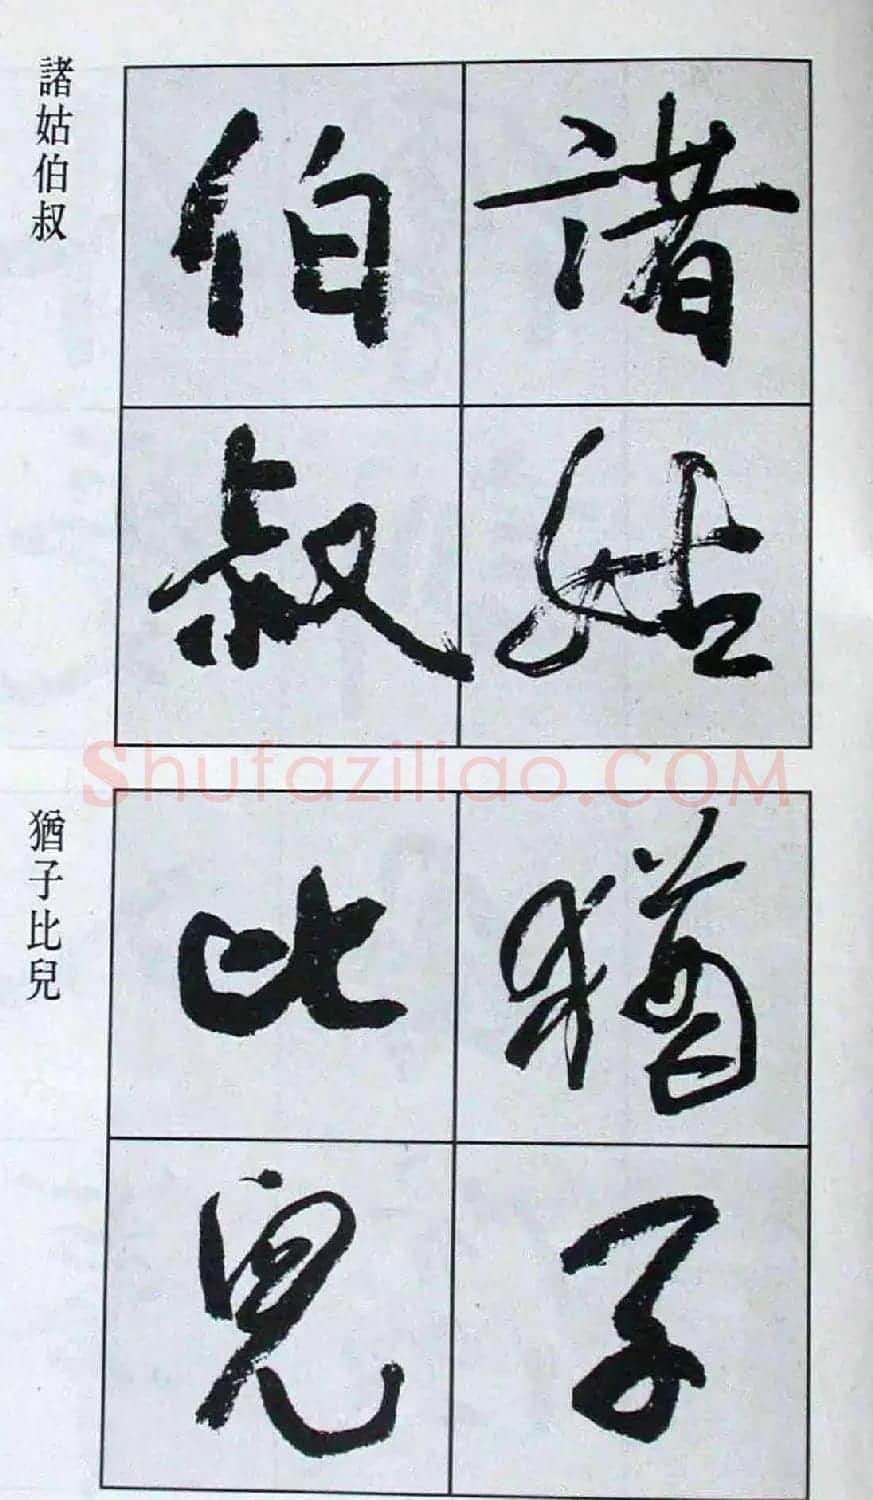 諸姑
伯叔
諸姑伯叔
猶子
比兒
猶子比兒
Shufaziliao.COM